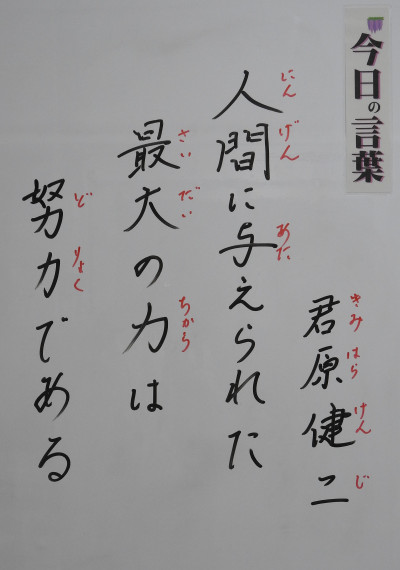 今日の言葉
君原健二
きみはらけんじ
人間に与えられた
にんげん あた
最大の力は
さいだい ちから
努力である
どりょく